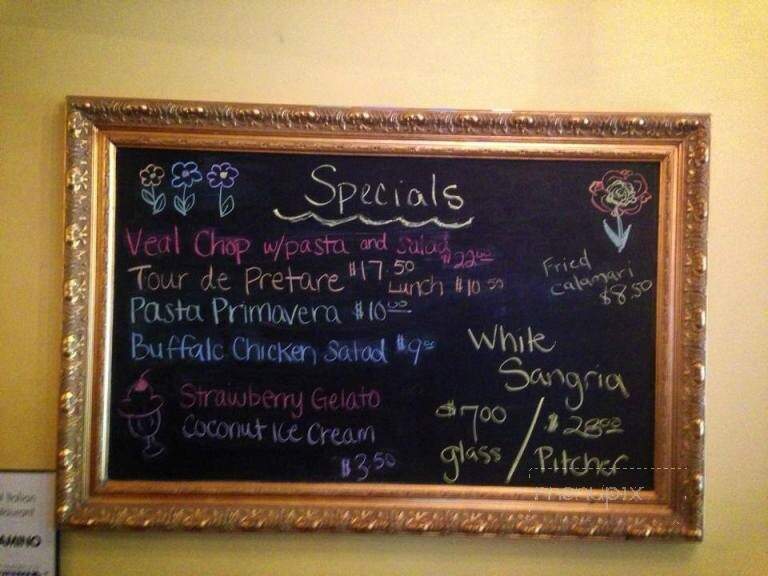 Specials
Veal Chop w/pasta and salad $22.00
Tour de Pretare $17.50 Lunch $10.50
Pasta Primavera $10.00
Buffalo Chicken Salad $9.00
Strawberry Gelato
Coconut Ice Cream
$3.50
Fried
calamari
$8.50
White
Sangria
$7.00 / $28.00
glass / Pitcher
menupix
Italian
AMINO